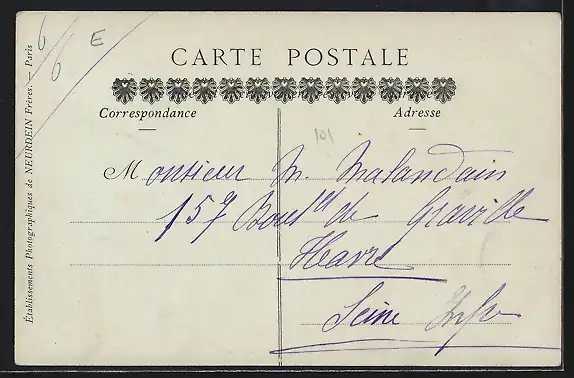 6
6
E
CARTE POSTALE
Correspondance
Adresse
101
Monsieur M. Malandain
157 Boul^d de Graville
Havre
Seine Infre
Établissements Photographiques de NEURDEIN Frères. — Paris